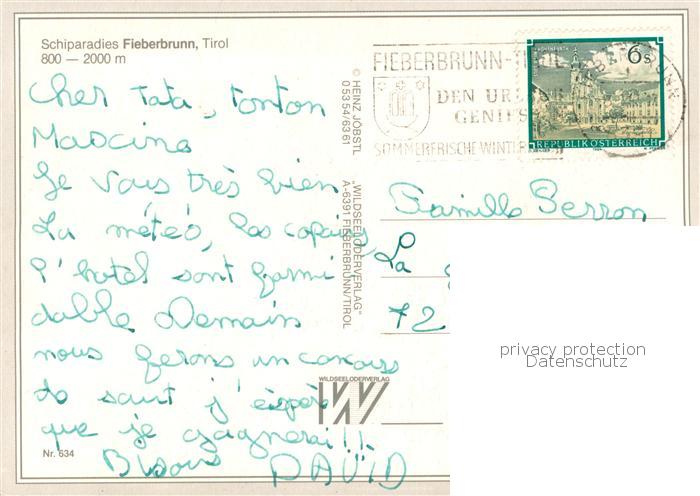 Schiparadies Fieberbrunn, Tirol
800 — 2000 m
Cher Tata, tonton
Maxime
Je vais très bien
La météo, les copains,
l'hotel sont formi
dable Demain
nous ferons un concours
de saut j'éspère
que je gagnerai!!
Bisous DAVID
Nr. 634
© HEINZ JÖBSTL
05354/6361
"WILDSEELODERVERLAG"
A-6391 FIEBERBRUNN/TIROL
WILDSEELODERVERLAG
W
FIEBERBRUNN-TIROL
DEN URL
GENIES
SOMMERFRISCHE-WINTER
6s
REPUBLIK ÖSTERREICH
Famille Perron
La
72
privacy protection
Datenschutz